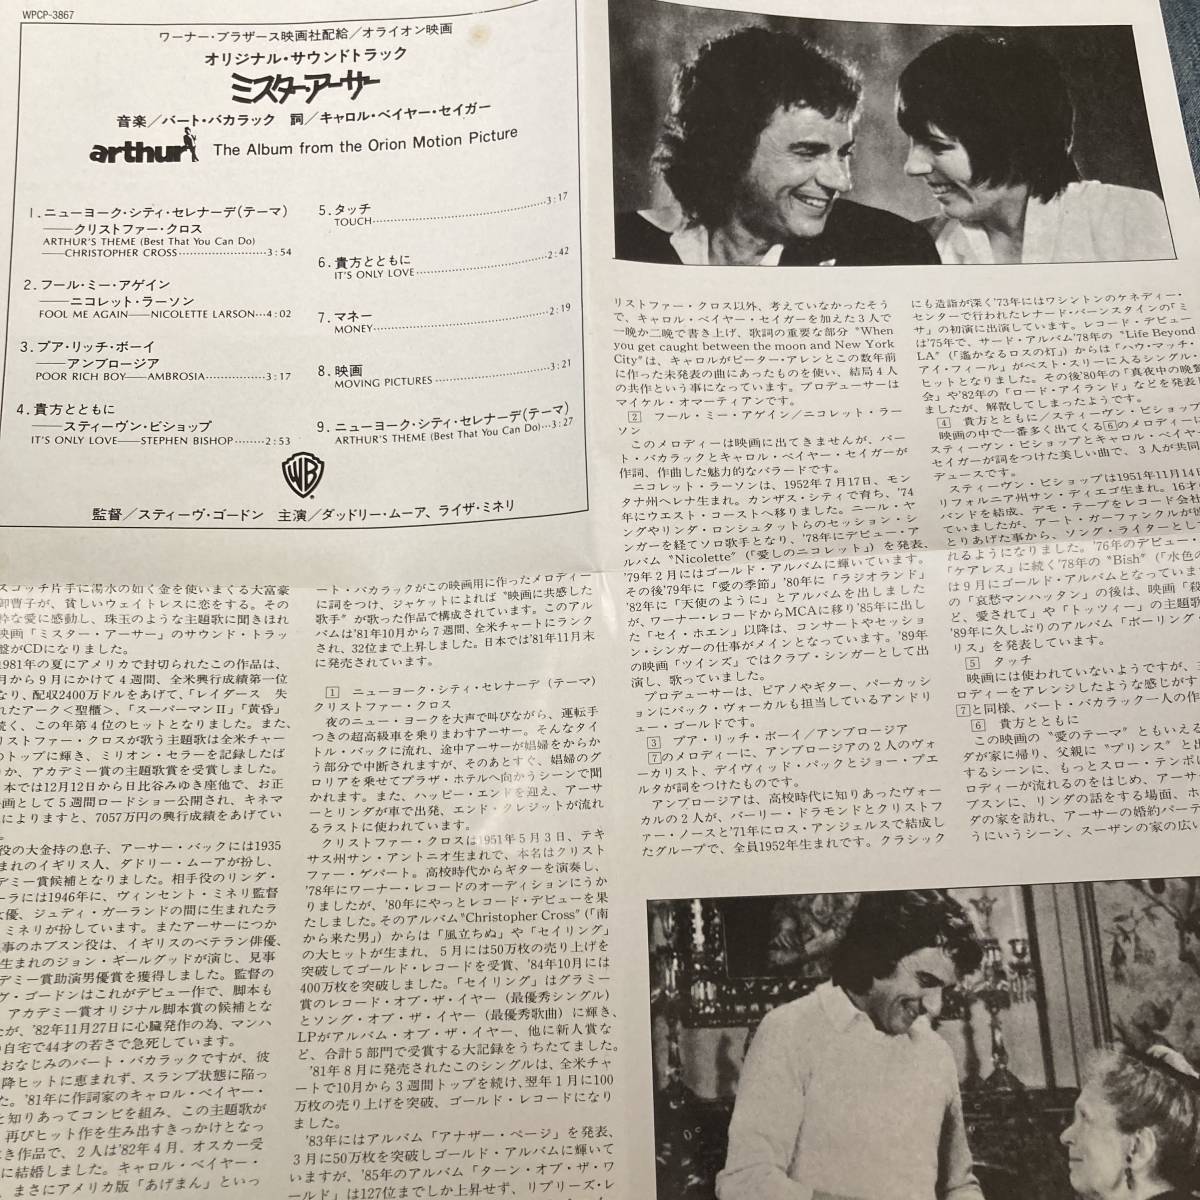 WPCP-3867
ワーナー・ブラザース映画社配給／オライオン映画
オリジナル・サウンドトラック
ミスター・アーサー
音楽／バート・バカラック 詞／キャロル・ベイヤー・セイガー
arthur The Album from the Orion Motion Picture
1.ニューヨーク・シティ・セレナーデ(テーマ)
──クリストファー・クロス
ARTHUR'S THEME (Best That You Can Do)
──CHRISTOPHER CROSS……3:54
2.フール・ミー・アゲイン
──ニコレット・ラーソン
FOOL ME AGAIN──NICOLETTE LARSON…4:02
3.プア・リッチ・ボーイ
──アンブロージア
POOR RICH BOY──AMBROSIA……3:17
4.貴方とともに
──スティーヴン・ビショップ
IT'S ONLY LOVE──STEPHEN BISHOP……2:53
5.タッチ
TOUCH……3:17
6.貴方とともに
IT'S ONLY LOVE……2:42
7.マネー
MONEY……2:19
8.映画
MOVING PICTURES……3:21
9.ニューヨーク・シティ・セレナーデ(テーマ)
ARTHUR'S THEME (Best That You Can Do)…3:27
WB
監督／スティーヴ・ゴードン 主演／ダッドリー・ムーア、ライザ・ミネリ
スコッチ片手に湯水の如く金を使いまくる大富豪
御曹子が、貧しいウェイトレスに恋をする。その
粋な愛に感動し、珠玉のような主題歌に聞きほれ
映画「ミスター・アーサー」のサウンド・トラッ
盤がCDになりました。
1981年の夏にアメリカで封切られたこの作品は、
月から9月にかけて4週間、全米興行成績第一位
なり、配収2400万ドルをあげて、「レイダース 失
れたアーク＜聖櫃＞、「スーパーマンII」「黄昏」
続く、この年第4位のヒットとなりました。また、
リストファー・クロスが歌う主題歌は全米チャー
のトップに輝き、ミリオン・セラーを記録したば
か、アカデミー賞の主題歌賞を受賞しました。
本では12月12日から日比谷みゆき座他で、お正
画として5週間ロードショー公開され、キネマ
によりますと、7057万円の興行成績をあげてい
。
役の大金持の息子、アーサー・バックには1935
まれのイギリス人、ダドリー・ムーアが扮し、
デミー賞候補となりました。相手役のリンダ・
ーラには1946年に、ヴィンセント・ミネリ監督
女優、ジュディ・ガーランドの間に生まれたラ
・ミネリが扮しています。またアーサーにつか
事のホブスン役は、イギリスのベテラン俳優、
生まれのジョン・ギールグッドが演じ、見事
デミー賞助演男優賞を獲得しました。監督の
ヴ・ゴードンはこれがデビュー作で、脚本も
、アカデミー賞オリジナル脚本賞の候補とな
たが、'82年11月27日に心臓発作の為、マンハ
の自宅で44才の若さで急死しています。
おなじみのバート・バカラックですが、彼
降ヒットに恵まれず、スランプ状態に陥っ
た。'81年に作詞家のキャロル・ベイヤー・
と知りあってコンビを組み、この主題歌が
、再びヒット作を生み出すきっかけとなっ
き作品で、2人は'82年4月、オスカー受
に結婚しました。キャロル・ベイヤー・
、まさにアメリカ版「あげまん」といっ
ート・バカラックがこの映画用に作ったメロディー
に詞をつけ、ジャケットによれば "映画に共感した
歌手" が歌った作品で構成されています。このアル
バムは'81年10月から7週間、全米チャートにランク
され、32位まで上昇しました。日本では'81年11月末
に発売されています。
1 ニューヨーク・シティ・セレナーデ (テーマ)
クリストファー・クロス
夜のニュー・ヨークを大声で叫びながら、運転手
つきの超高級車を乗りまわすアーサー。そんなタイ
トル・バックに流れ、途中アーサーが娼婦をからか
う部分で中断されますが、そのあとすぐ、娼婦のグ
ロリアを乗せてプラザ・ホテルへ向かうシーンで聞
かれます。また、ハッピー・エンドを迎え、アーサ
ーとリンダが車で出発、エンド・クレジットが流れ
るラストに使われています。
クリストファー・クロスは1951年5月3日、テキ
サス州サン・アントニオ生まれで、本名はクリスト
ファー・ゲパート。高校時代からギターを演奏し、
'78年にワーナー・レコードのオーディションにうか
りましたが、'80年にやっとレコード・デビューを果
たしました。そのアルバム"Christopher Cross"(「南
から来た男」)からは「風立ちぬ」や「セイリング」
の大ヒットが生まれ、5月には50万枚の売り上げを
突破してゴールド・レコードを受賞、'84年10月には
400万枚を突破しました。「セイリング」はグラミー
賞のレコード・オブ・ザ・イヤー(最優秀シングル)
とソング・オブ・ザ・イヤー(最優秀歌曲)に輝き、
LPがアルバム・オブ・ザ・イヤー、他に新人賞な
ど、合計5部門で受賞する大記録をうちたてました。
'81年8月に発売されたこのシングルは、全米チャ
ートで10月から3週間トップを続け、翌年1月に100
万枚の売り上げを突破、ゴールド・レコードになり
ました。
'83年にはアルバム「アナザー・ページ」を発表、
3月に50万枚を突破しゴールド・アルバムに輝いて
いますが、'85年のアルバム「ターン・オブ・ザ・ワ
ールド」は127位までしか上昇せず、リプリーズ・レ
リストファー・クロス以外、考えていなかったそう
で、キャロル・ベイヤー・セイガーを加えた3人で
一晩か二晩で書き上げ、歌詞の重要な部分 "When
you get caught between the moon and New York
City"は、キャロルがピーター・アレンとこの数年前
に作った未発表の曲にあったものを使い、結局4人
の共作という事になっています。プロデューサーは
マイケル・オマーティアンです。
2 フール・ミー・アゲイン／ニコレット・ラー
ソン
このメロディーは映画に出てきませんが、バー
ト・バカラックとキャロル・ベイヤー・セイガーが
作詞、作曲した魅力的なバラードです。
ニコレット・ラーソンは、1952年7月17日、モン
タナ州ヘレナ生まれ。カンザス・シティで育ち、'74
年にウエスト・コーストへ移りました。ニール・ヤ
ングやリンダ・ロンシュタットらのセッション・シ
ンガーを経てソロ歌手となり、'78年にデビュー・ア
ルバム "Nicolette"(「愛しのニコレット」)を発表、
'79年2月にはゴールド・アルバムに輝いています。
その後'79年に「愛の季節」'80年に「ラジオランド」
'82年に「天使のように」とアルバムを出しました
が、ワーナー・レコードからMCAに移り'85年に出し
た「セイ・ホエン」以降は、コンサートやセッショ
ン・シンガーの仕事がメインとなっています。'89年
の映画「ツインズ」ではクラブ・シンガーとして出
演し、歌っていました。
プロデューサーは、ピアノやギター、パーカッシ
ョンにバック・ヴォーカルも担当しているアンドリ
ュー・ゴールドです。
3 プア・リッチ・ボーイ／アンブロージア
7のメロディーに、アンブロージアの2人のヴォ
ーカリスト、デイヴィッド・パックとジョー・プエ
ルタが詞をつけたものです。
アンブロージアは、高校時代に知りあったヴォー
カルの2人が、バーリー・ドラモンドとクリストフ
ァー・ノースと'71年にロス・アンジェルスで結成し
たグループで、全員1952年生まれです。クラシック
にも造詣が深く'73年にはワシントンのケネディー・
センターで行われたレナード・バーンスタインの「ミ
サ」の初演に出演しています。レコード・デビュー
は'75年で、サード・アルバム'78年の "Life Beyond
LA"(「遙かなるロスの灯」)からは「ハウ・マッチ・
アイ・フィール」がベスト・スリーに入るシングル・
ヒットとなりました。その後'80年の「真夜中の晩餐
会」や'82年の「ロード・アイランド」などを発表し
ましたが、解散してしまったようです。
4 貴方とともに／スティーヴン・ビショップ
映画の中で一番多く出てくる6のメロディーに
スティーヴン・ビショップとキャロル・ベイヤ
セイガーが詞をつけた美しい曲で、3人が共同
デュースです。
スティーヴン・ビショップは1951年11月14日
リフォルニア州サン・ディエゴ生まれ。16才
バンドを結成、デモ・テープをレコード会社
ていましたが、アート・ガーファンクルが彼
とりあげた事から、ソング・ライターとして
れるようになりました。'76年のデビュー・
「ケアレス」に続く'78年の "Bish"(「水色の
は9月にゴールド・アルバムとなっています
の「哀愁マンハッタン」の後は、映画「殺
と、愛されて」や「トッツィー」の主題歌
'89年に久しぶりのアルバム「ボーリング・
リス」を発表しています。
5 タッチ
映画には使われていないようですが、主
ロディーをアレンジしたような感じがす
7と同様、バート・バカラック一人の作
6 貴方とともに
この映画の "愛のテーマ" ともいえる
ダが家に帰り、父親に "プリンス" と出
するシーンに、もっとスロー・テンポに
ロディーが流れるのをはじめ、アーサ
ブスンに、リンダの話をする場面、ホ
ダの家を訪れ、アーサーの婚約パーテ
うにいうシーン、スーザンの家の広い